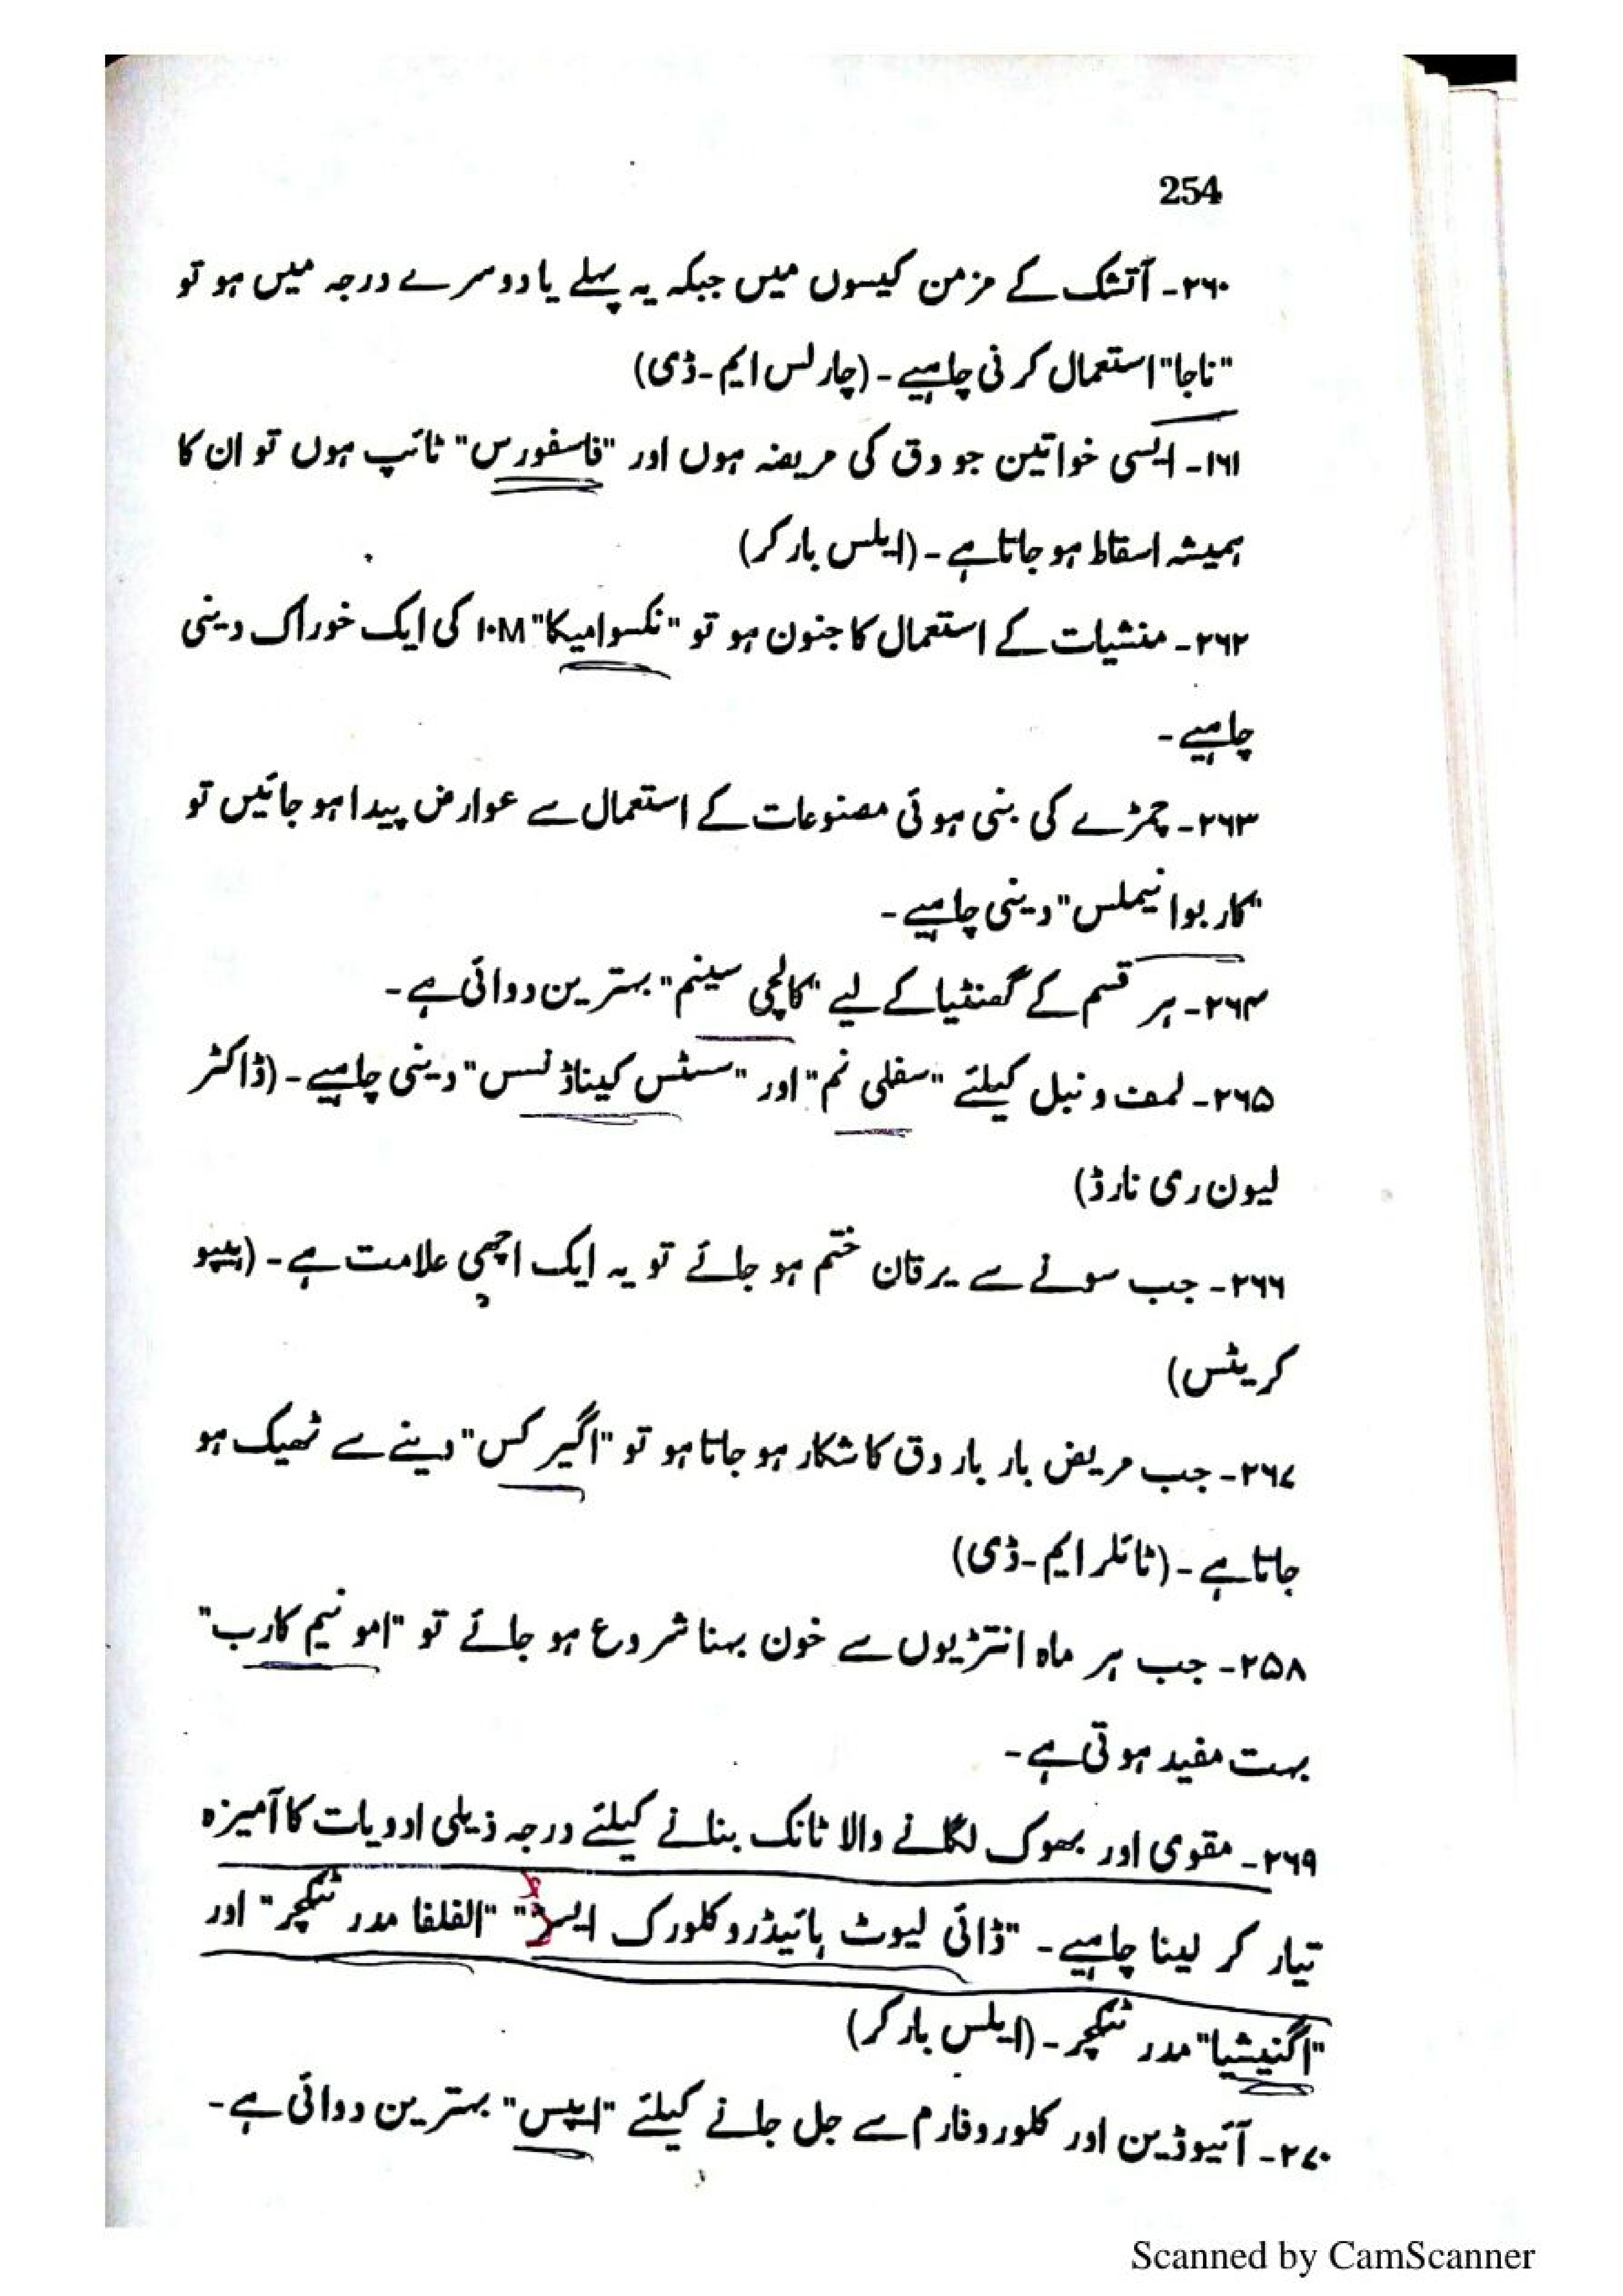 254
۲۶۰۔ آتشک کے مزمن کیسوں میں جبکہ یہ پہلے یا دوسرے درجہ میں ہو تو
"ناجا" استعمال کرنی چاہیے۔ (چارلس ایم۔ڈی)
۱۶۱۔ ایسی خواتین جو دق کی مریضہ ہوں اور "فاسفورس" ٹائپ ہوں تو ان کا
ہمیشہ اسقاط ہو جاتا ہے۔ (ایلس بارکر)
۲۶۲۔ منشیات کے استعمال کا جنون ہو تو "نکسوامیکا" ۱۰M کی ایک خوراک دینی
چاہیے۔
۲۶۳۔ چمڑے کی بنی ہوئی مصنوعات کے استعمال سے عوارض پیدا ہو جائیں تو
"کاربوا نیملس" دینی چاہیے۔
۲۶۴۔ ہر قسم کے گھنٹیا کے لیے "کالچی سینم" بہترین دوائی ہے۔
۲۶۵۔ لمف دنبل کیلئے "سفلی نم" اور "سٹس کیناڈنسس" دینی چاہیے۔ (ڈاکٹر
لیون ری نارڈ)
۲۶۶۔ جب سونے سے یرقان ختم ہو جائے تو یہ ایک اچھی علامت ہے۔ (ہیپو
کریٹس)
۲۶۷۔ جب مریض بار بار دق کا شکار ہو جاتا ہو تو "اگیر کس" دینے سے ٹھیک ہو
جاتا ہے۔ (ٹائلر ایم۔ڈی)
۲۵۸۔ جب ہر ماہ انتڑیوں سے خون بہنا شروع ہو جائے تو "امونیم کارب"
بہت مفید ہوتی ہے۔
۲۶۹۔ مقوی اور بھوک لگانے والا ٹانک بنانے کیلئے درجہ ذیلی ادویات کا آمیزہ
تیار کر لینا چاہیے۔ "ڈائی لیوٹ ہائیڈروکلورک ایسڈ" "الفلفا مدر ٹنکچر" اور
"اگنیشیا" مدر ٹنکچر۔ (ایلس بارکر)
۲۷۰۔ آئیوڈین اور کلوروفارم سے جل جانے کیلئے "ایپس" بہترین دوائی ہے۔
Scanned by CamScanner